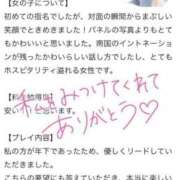 【女の子について】
初めての指名でしたが、対面の瞬間からまぶしい
笑顔でときめきました！パネルの写真よりもと
てもかわいいと思いました。南国のイントネーショ
ンが残ったかわいらしい話し方でしたが、とても
ホスピタリティ溢れる女性です。
私をみつけてくれて
ありがとう♡
【プレイ内容】
私の方が年下であったため、優しくリードして
いただきました。
こちらの要望にも答えていただき、本当に楽し